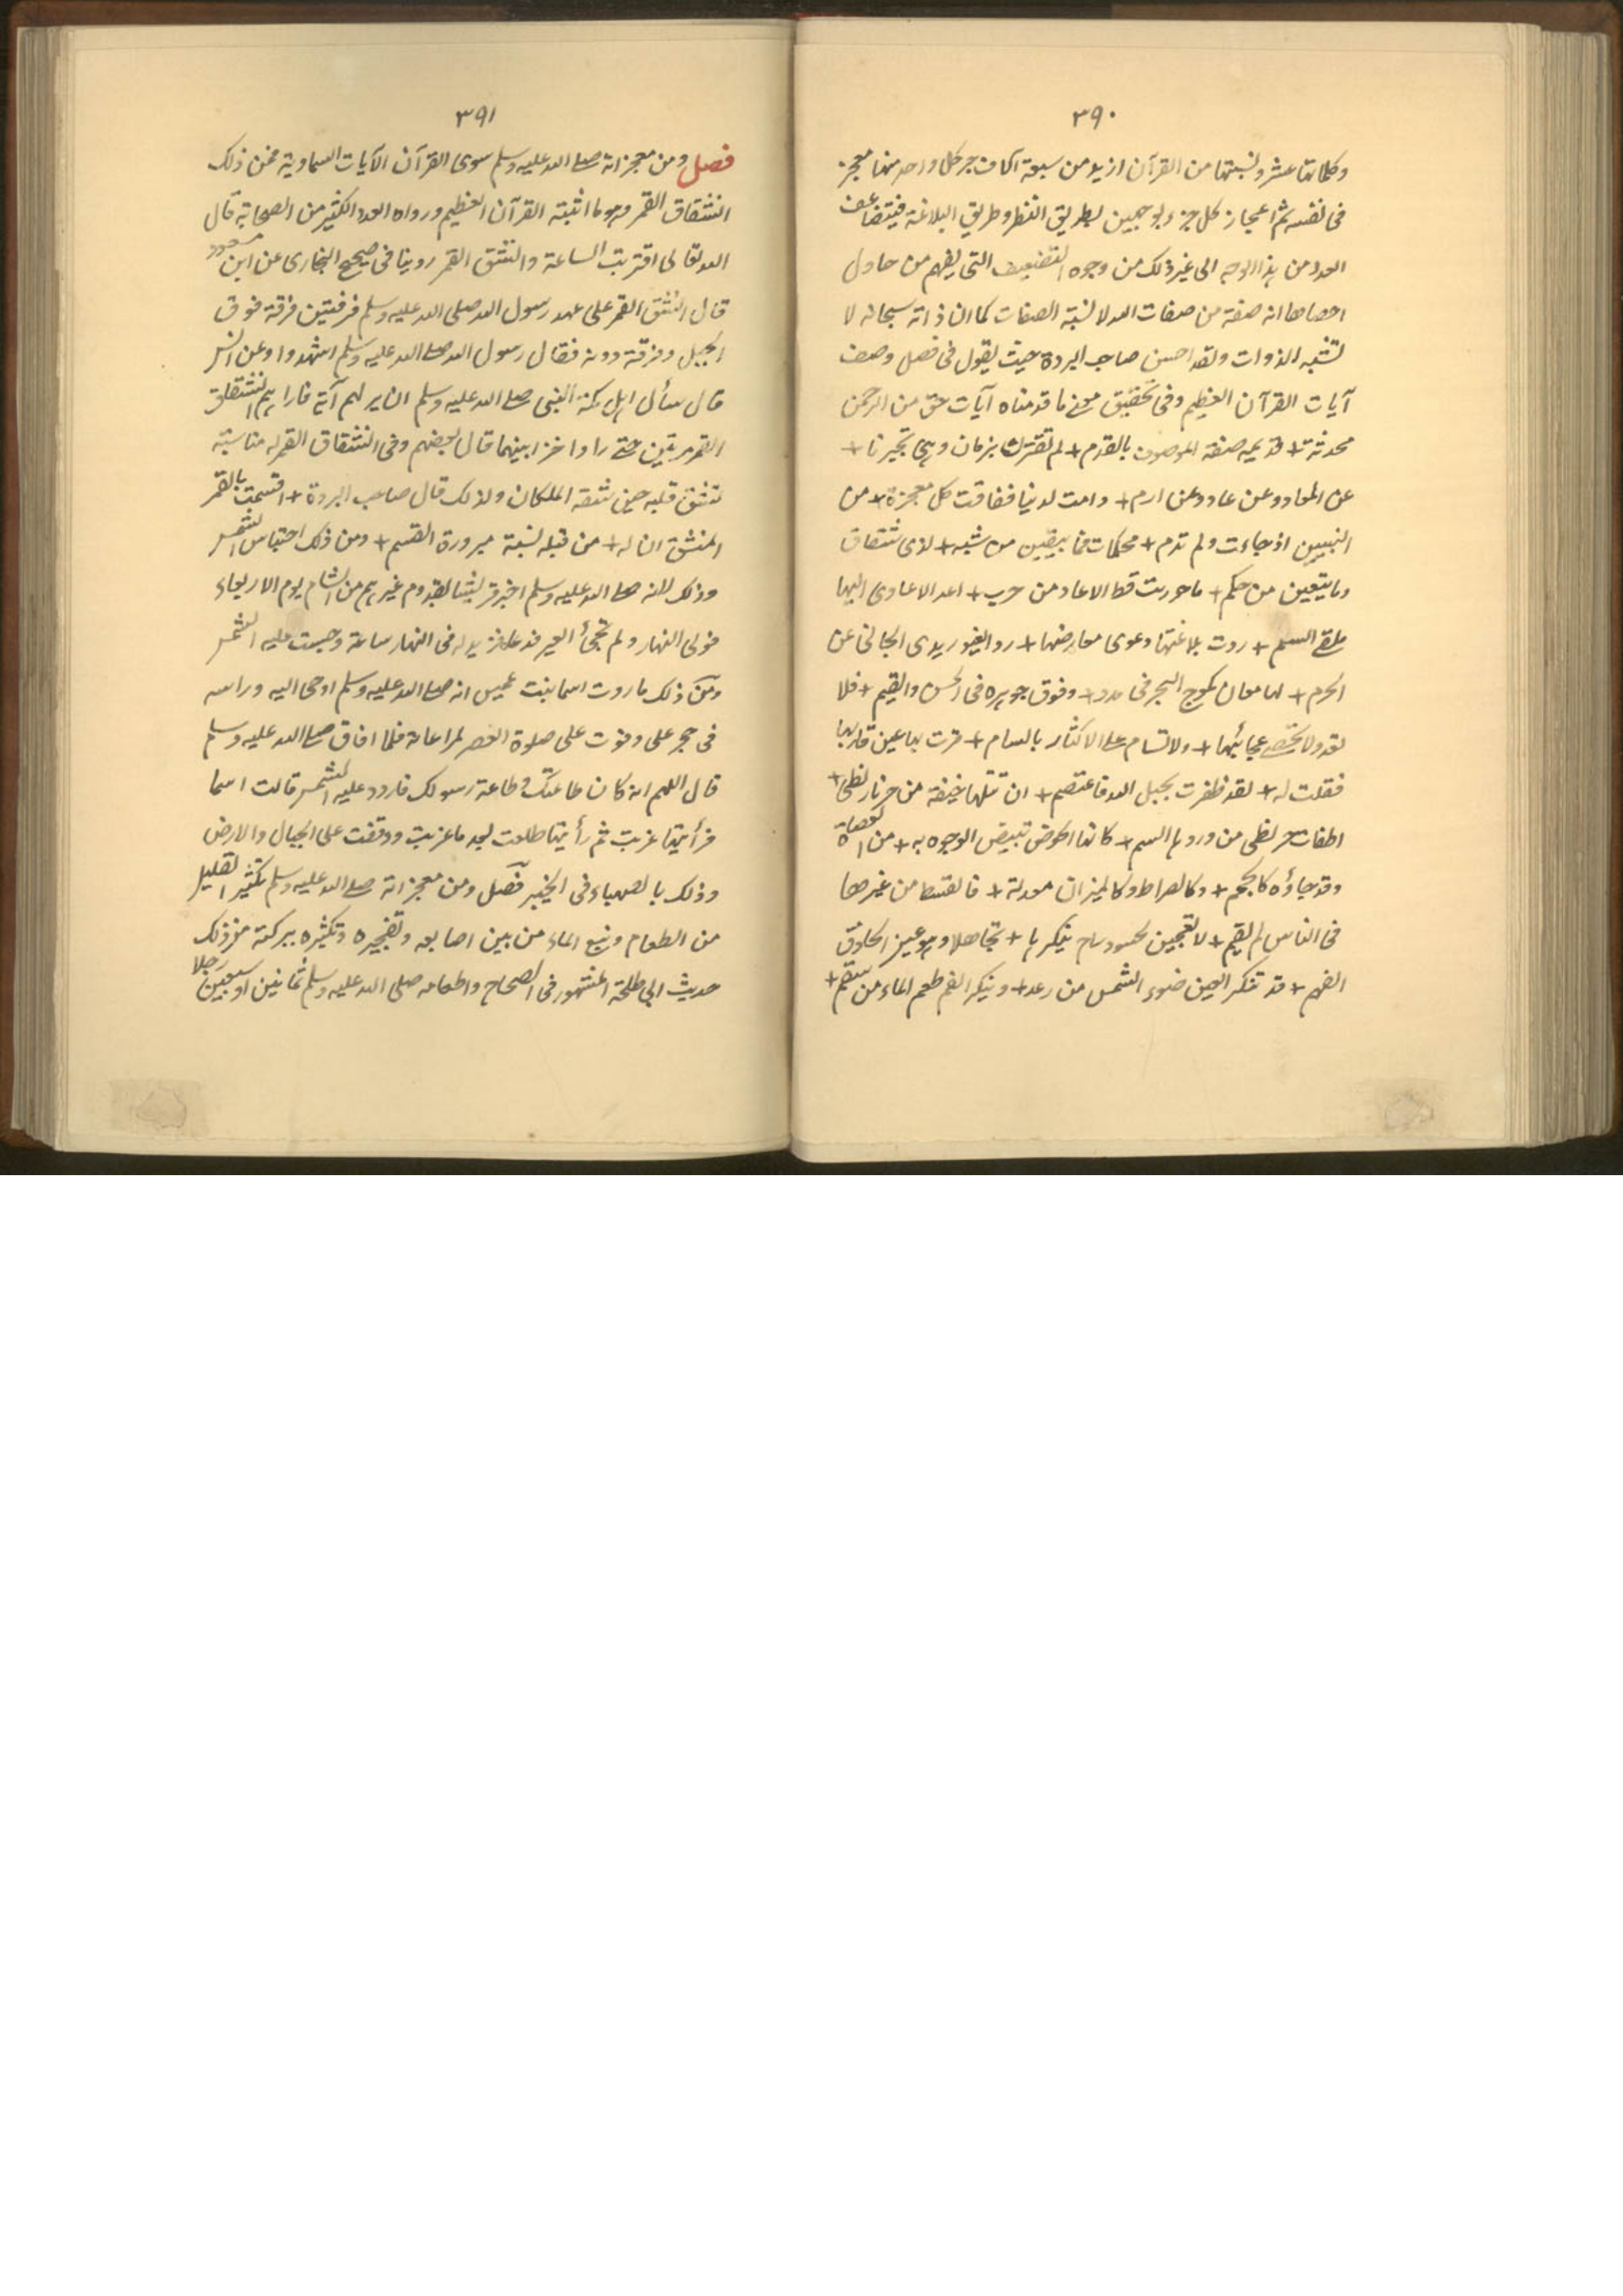 ٣٩٠
وكلماتها عشر ونسبتها من القرآن ازيد من سبعة آلاف جزء كل واحد منها معجز
فى نفسه ثم اعجاز كل جزء بوجهين بطريق النظم وطريق البلاغة فيتضاعف
العدد من هذا الوجه الى غير ذلك من وجوه التضعيف التى يفهم من حاول
احصاها انه صفة من صفات الله لا تشبه الصفات كما ان ذاته سبحانه لا
تشبه الذوات ولقد احسن صاحب البردة حيث يقول فى فصل وصف
آيات القرآن العظيم وفى تحقيق معنى ما قدمناه آيات حق من الرحمن
محدثة + قديمه صفة الموصوف بالقدم + لم تقترن بزمان وهى تخبرنا +
عن المعاد وعن عاد وعن ارم + دامت لدينا ففاقت كل معجزة + من
النبيين اذ جاءت ولم تدم + محكمات فما يبقين من شبه + لذى شقاق
وما يبغين من حكم + ما حوربت قط الا عاد من حرب + اعد الاعادى اليها
ملقى السلم + ردت بلاغتها دعوى معارضها + رد الغيور يدى الجانى عن
الحرم + لها معان كموج البحر فى مدد + وفوق جوهره فى الحسن والقيم + فلا
تعد ولا تحصى عجائبها + ولا تسام على الاكثار بالسام + قرت بها عين قاريها
فقلت له + لقد ظفرت بحبل الله فاعتصم + ان تتلها خيفة من حر نار لظى +
اطفات حر لظى من وردها الشبم + كانها الحوض تبيض الوجوه به + من العصاة
وقد جاؤه كالحمم + وكالصراط وكالميزان معدلة + فالقسط من غيرها
فى الناس لم يقم + لا تعجبن لحسود راح ينكرها + تجاهلا وهو عين الحاذق
الفهم + قد تنكر العين ضوء الشمس من رمد + وينكر الفم طعم الماء من سقم +
٣٩١
فصل ومن معجزاته صلى الله عليه وسلم سوى القرآن الآيات السماوية فمن ذلك
انشقاق القمر وهو ما اثبته القرآن العظيم ورواه العدد الكثير من الصحابة قال
الله تعالى اقتربت الساعة وانشق القمر روينا فى صحيح البخارى عن ابن مسعود
قال انشق القمر على عهد رسول الله صلى الله عليه وسلم فرقتين فرقة فوق
الجبل وفرقة دونه فقال رسول الله صلى الله عليه وسلم اشهدوا وعن انس
قال سأل اهل مكة النبى صلى الله عليه وسلم ان يريهم آية فاراهم انشقاق
القمر مرتين حتى راوا حرا بينهما قال بعضهم وفى انشقاق القمر له مناسبة
لشق قلبه حين شقه الملكان ولذلك قال صاحب البردة + اقسمت بالقمر
المنشق ان له + من قبله نسبة مبرورة القسم + ومن ذلك احتباس الشمس
وذلك لانه صلى الله عليه وسلم اخبر قريشا بقدوم عيرهم من الشام يوم الاربعاء
فولى النهار ولم تجئ العير فدعا فزيد له فى النهار ساعة وحبست عليه الشمس
ومن ذلك ما روت اسما بنت عميس انه صلى الله عليه وسلم اوحى اليه وراسه
فى حجر على وفوت على صلوة العصر لمراعاته فلما افاق صلى الله عليه وسلم
قال اللهم انه كان طاعتك وطاعة رسولك فاردد عليه الشمس قالت اسما
فرأيتها غربت ثم رأيتها طلعت بعد ما غربت ووقفت على الجبال والارض
وذلك بالصهباء فى الخيبر فصل ومن معجزاته صلى الله عليه وسلم تكثير القليل
من الطعام ونبع الماء من بين اصابعه وتفجيره وتكثيره ببركته فمن ذلك
حديث ابى طلحة المشهور فى الصحاح واطعامه صلى الله عليه وسلم ثمانين او سبعين رجلا